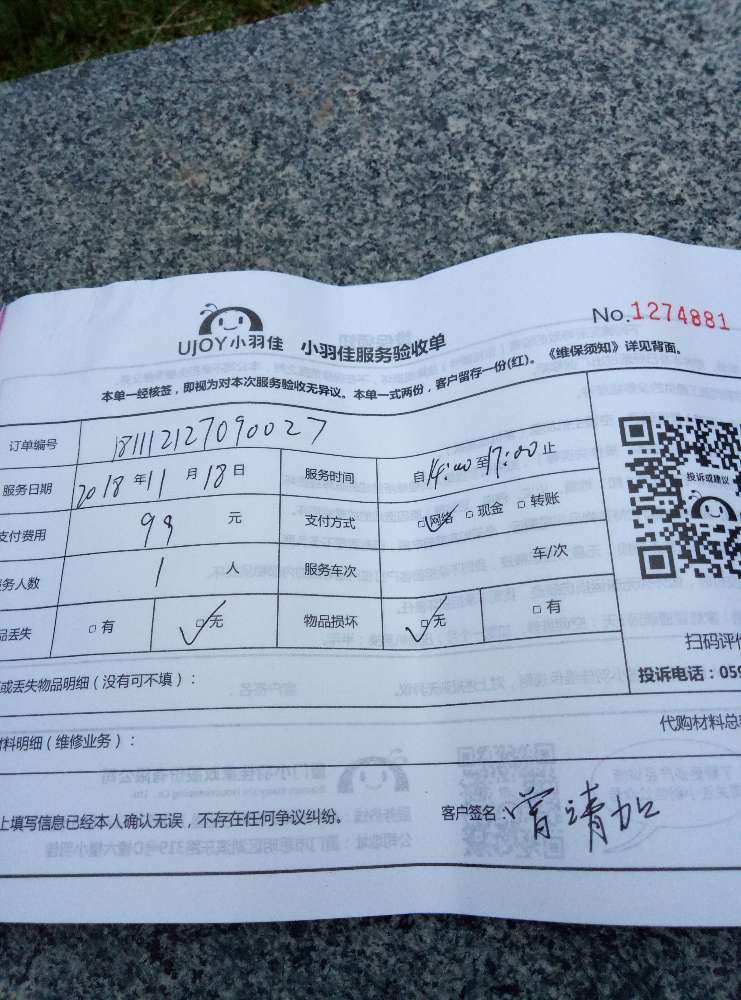 No.1274881
UJOY小羽佳 小羽佳服务验收单
本单一经核签，即视为对本次服务验收无异议。本单一式两份，客户留存一份(红)。《维保须知》详见背面。
订单编号 18111212709​0027
服务日期 2018年11月18日 服务时间 自14:00至17:00止
支付费用 99元 支付方式 □网络 □现金 □转账
务人数 1人 服务车次 车/次
品丢失 □有 □无 物品损坏 □无 □有
投诉或建议
扫码评价
投诉电话：059
或丢失物品明细（没有可不填）：
代购材料总
材料明细（维修业务）：
上填写信息已经本人确认无误，不存在任何争议纠纷。 客户签名：